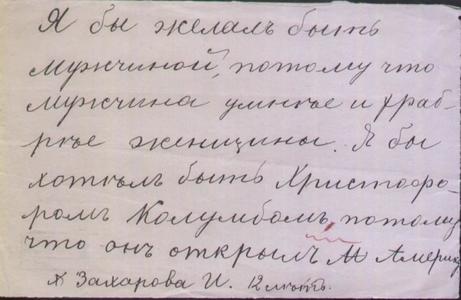 Я бы желалъ быть
мужчиной, потому что
мужчина умнѣе и храб-
рѣе женщины. Я бы
хотѣлъ быть Христофо-
ромъ Колумбомъ, потому
что онъ открылъ Америк
Захарова И. 12 лѣтъ.